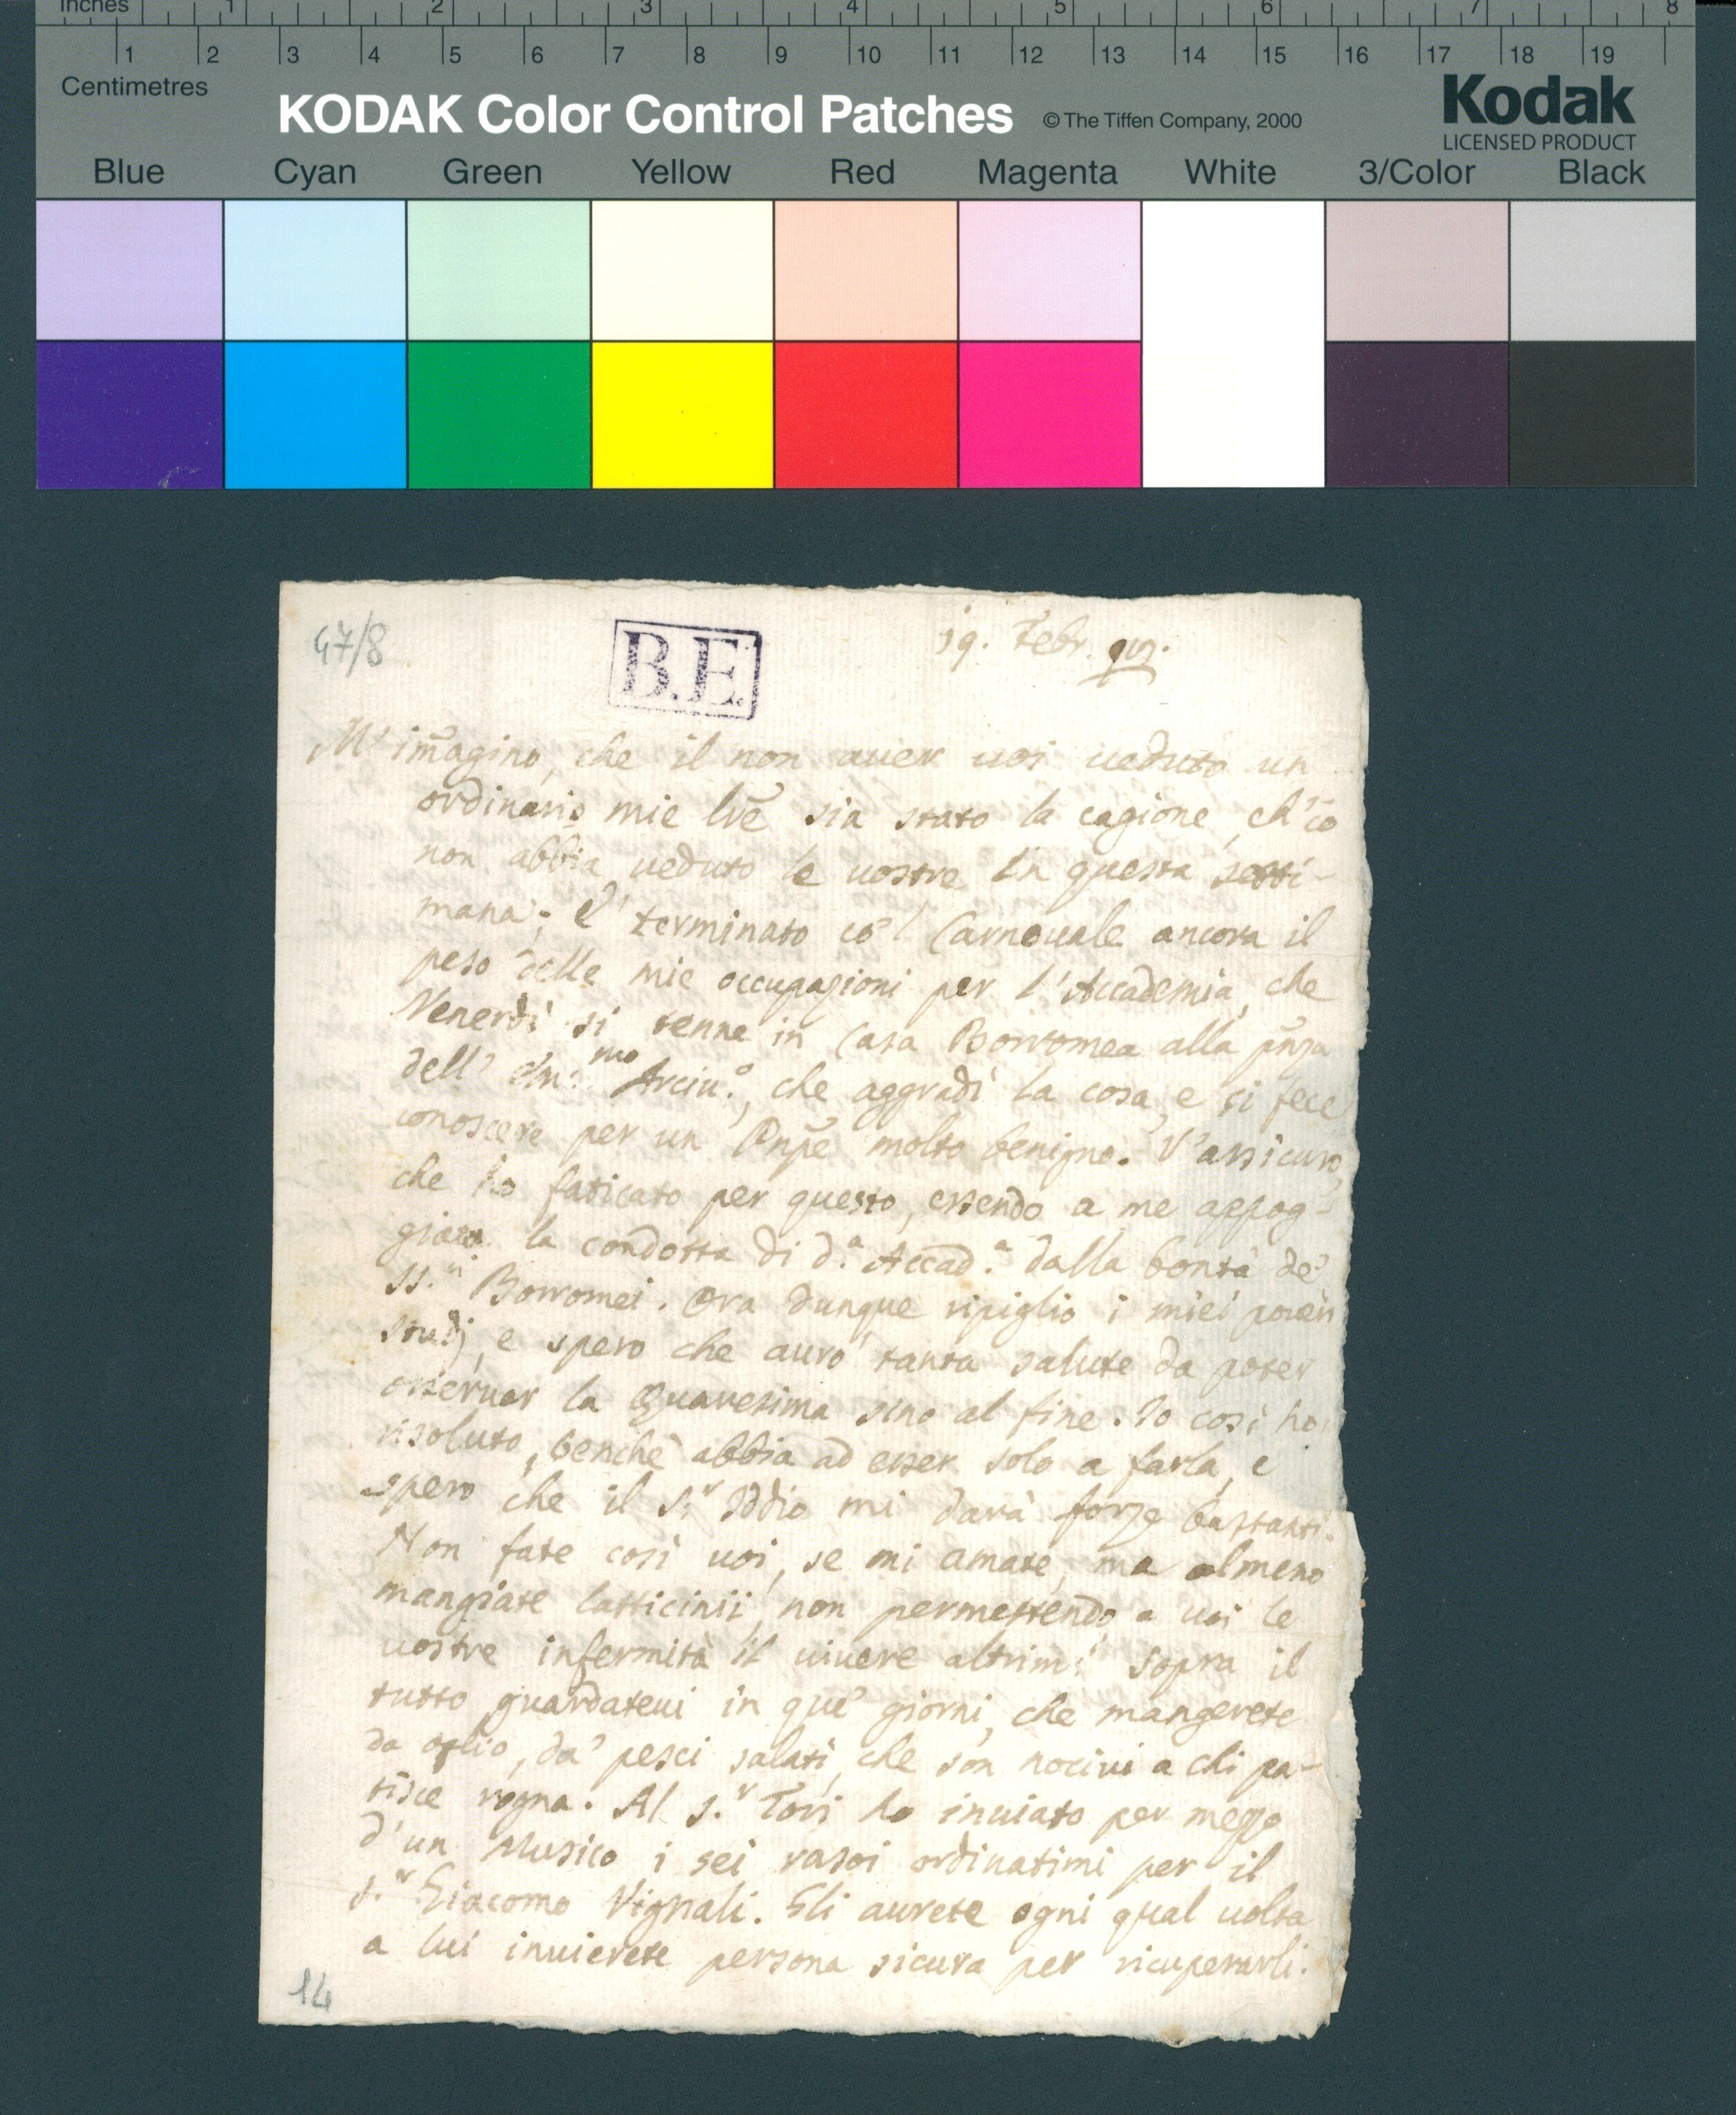 Inches 1 2 3 4 5 6 7 8
1 2 3 4 5 6 7 8 9 10 11 12 13 14 15 16 17 18 19
Centimetres
KODAK Color Control Patches © The Tiffen Company, 2000 Kodak
LICENSED PRODUCT
Blue Cyan Green Yellow Red Magenta White 3/Color Black
47/8 B.E. 19. Febr.
M' im̃agino, che il non auer uoi ueduto un
ordinario mie lr̃e sia stato la cagione, ch'io
non abbia ueduto le uostre in questa setti-
mana. E' terminato co'l Carnouale ancora il
peso delle mie occupazioni per l'Accademia, che
Venerdì si tenne in Casa Borromea alla pñza
dell' Em.mo Arciu.o, che aggradì la cosa, e si fece
conoscere per un Pnp̃e molto benigno. V'assicuro,
che ho faticato per questo, essendo a me appog-
giata la condotta di d.a Accad.a dalla bontà de'
SS.ri Borromei. Ora dunque ripiglio i miei poueri
studj, e spero che aurò tanta salute da poter
osseruar la Quaresima sino al fine. Io così ho
risoluto, benchè abbia ad esser solo a farla, e
spero che il S.r Iddio mi darà forze bastanti.
Non fate così uoi, se mi amate, ma almeno
mangiate latticinii, non permettendo a uoi le
uostre infermità il uiuere altrim.i Sopra il
tutto guardateui in que' giorni, che mangerete
da oglio, da' pesci salati, che son nociui a chi pa-
tisce rogna. Al S.r Tori ho inuiato per mezzo
d'un Musico i sei rasoi ordinatimi per il
S.r Giacomo Vignali. Gli aurete ogni qual uolta
a lui inuierete persona sicura per ricuperarli.
14